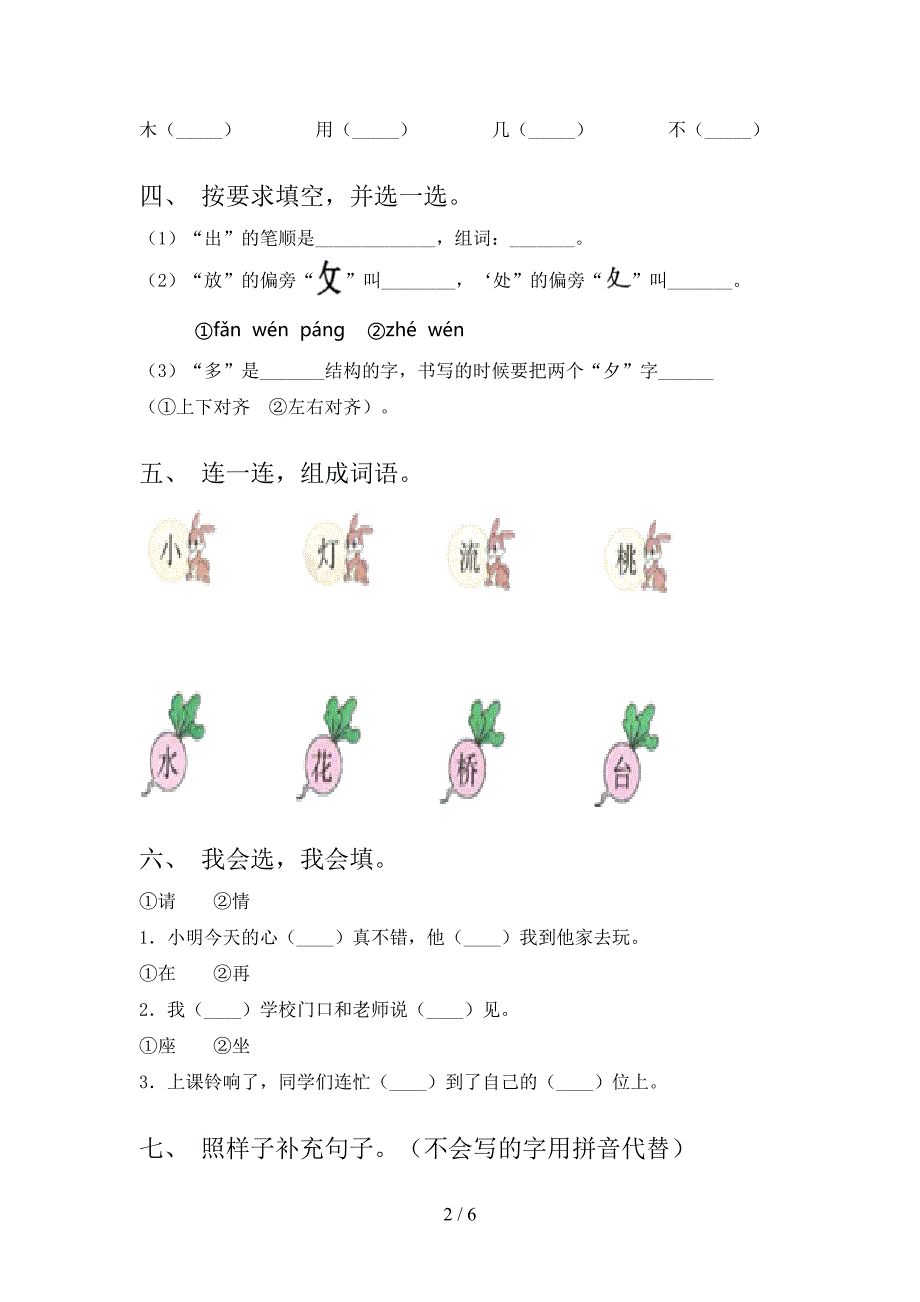 木（_____）　用（_____）　几（_____）　不（_____）
四、 按要求填空，并选一选。
（1）“出”的笔顺是_____________，组词：_______。
（2）“放”的偏旁“攵”叫________，‘处”的偏旁“夂”叫_______。
①fǎn wén páng　②zhé wén
（3）“多”是_______结构的字，书写的时候要把两个“夕”字______
（①上下对齐　②左右对齐）。
五、 连一连，组成词语。
小　灯　流　桃
水　花　桥　台
六、 我会选，我会填。
①请　　②情
1．小明今天的心（____）真不错，他（____）我到他家去玩。
①在　　②再
2．我（____）学校门口和老师说（____）见。
①座　　②坐
3．上课铃响了，同学们连忙（____）到了自己的（____）位上。
七、 照样子补充句子。（不会写的字用拼音代替）
2 / 6